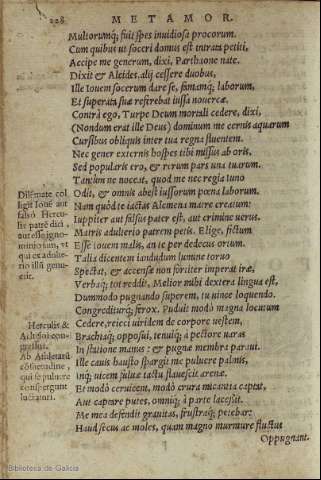 228
METAMOR.
Multorumq; fuit spes inuidiosa procorum.
Cum quibus ut soceri domus est intrata petiti,
Accipe me generum, dixi, Parthaone nate.
Dixit & Alcides. alij cessere duobus,
Ille Iouem socerum dare se, famamq; laborum,
Et superata suæ referebat iussa nouercæ.
Contrà ego, Turpe Deum mortali cedere, dixi,
(Nondum erat ille Deus) dominum me cernis aquarum
Cursibus obliquis inter tua regna fluentem.
Nec gener externis hospes tibi missus ab oris,
Sed popularis ero, & rerum pars una tuarum.
Tantùm ne noceat, quod me nec regia Iuno
Odit, & omnis abest iussorum pœna laborum.
Nam quòd te iactas Alcmena matre creatum:
Iuppiter aut falsus pater est, aut crimine uerus.
Matris adulterio patrem petis. Elige, fictum
Esse Iouem malis, an te per dedecus ortum.
Talia dicentem iandudum lumine toruo
Spectat, & accensæ non fortiter imperat iræ,
Verbaq; tot reddit, Melior mihi dextera lingua est,
Dummodo pugnando superem, tu uince loquendo.
Congrediturq; ferox. Puduit modò magna locutum
Cedere, reieci uiridem de corpore uestem,
Brachiaq; opposui, tenuiq; à pectore uaras
In statione manus: & pugnæ membra paraui.
Ille cauis hausto spargit me puluere palmis,
Inq; uicem fuluæ tactu flauescit arenæ.
Et modò ceruicem, modò crura micantia captat,
Aut captare putes, omniq; à parte lacessit.
Me mea defendit grauitas, frustraq; petebar:
Haud secus ac moles, quam magno murmure fluctus
Oppugnant.
Dilēmate col
ligit Ioué aut
falsò Hercu-
lis patrē dici,
aut esse igno-
miniosum, ut
qui ex adulte-
rio illū genu-
erit.
Herculis &
Acheloi con-
gressus.
Ab Athletarū
cōsuetudine,
qui se puluere
conspergunt
luctaturi.
Biblioteca de Galicia